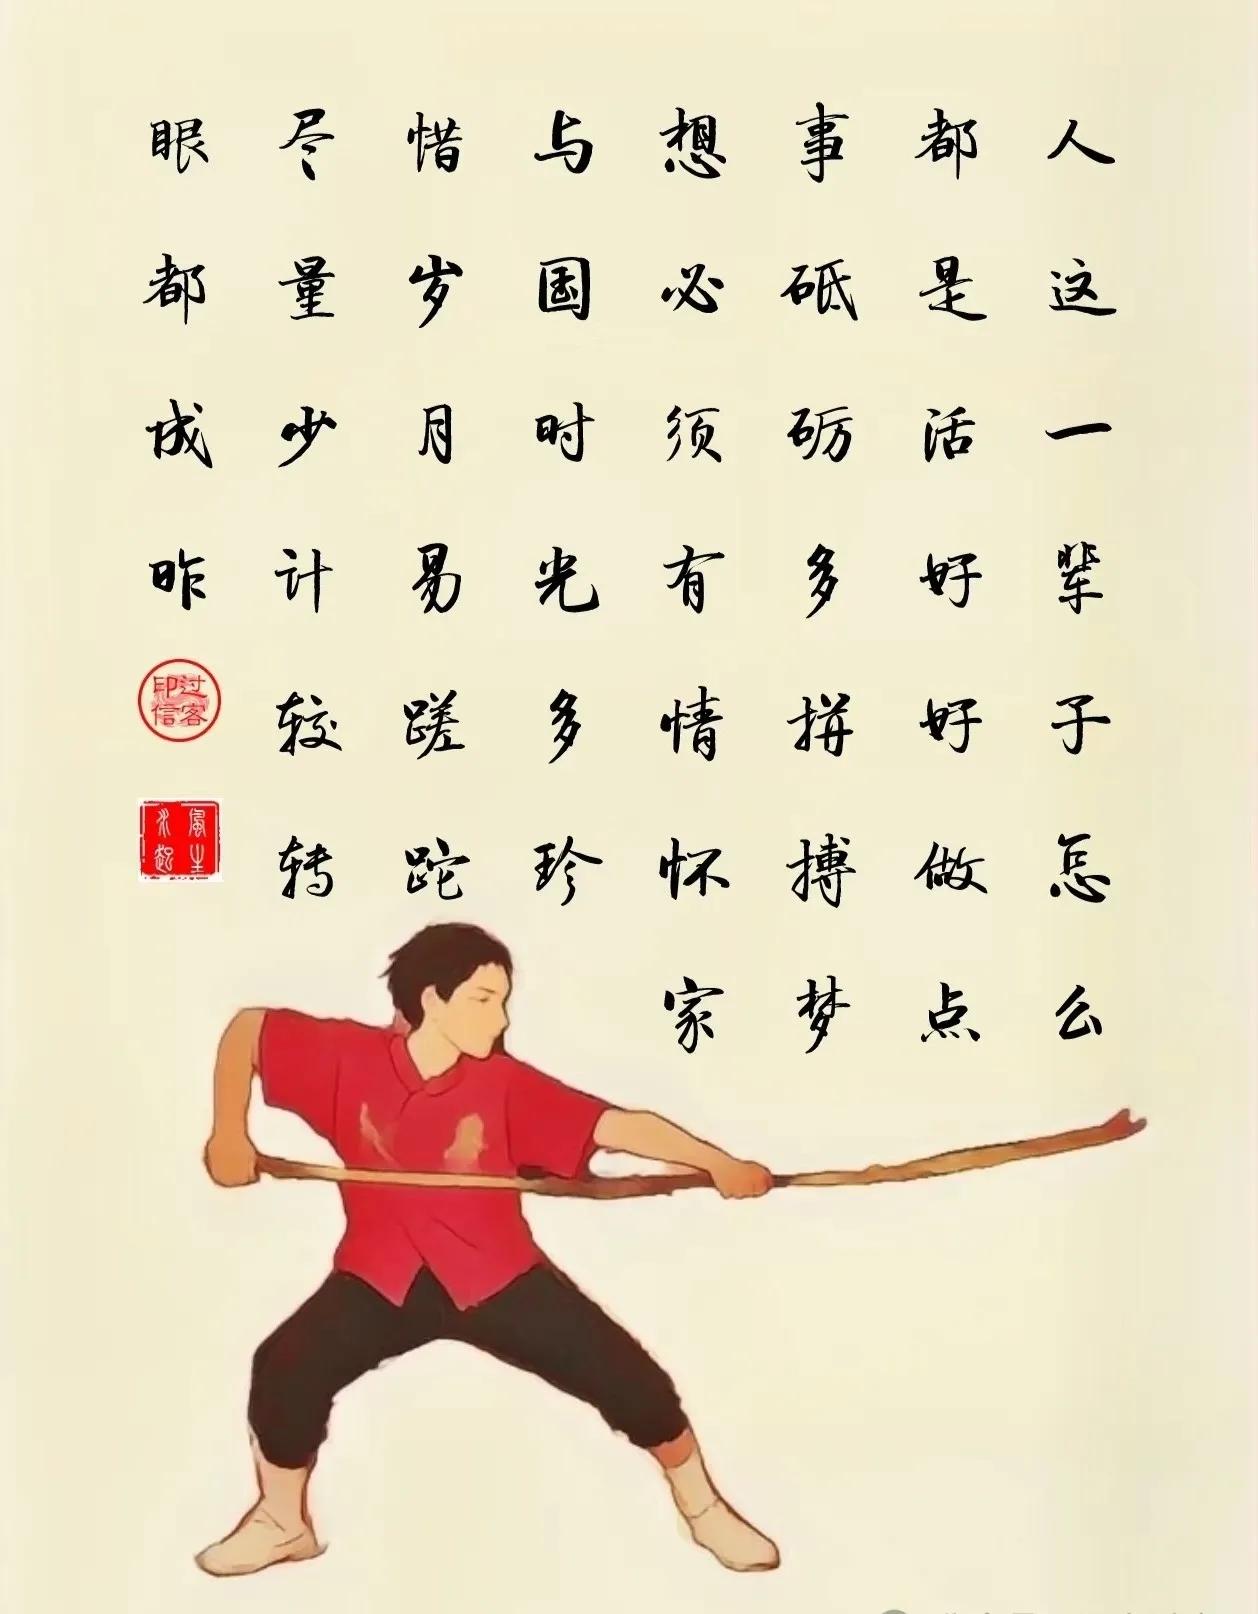 人这一辈子怎么
都是活好好做点
事砥砺多拼搏梦
想必须有情怀家
与国时光多珍
惜岁月易蹉跎
尽量少计较转
眼都成昨
过客
印信
风生
水起